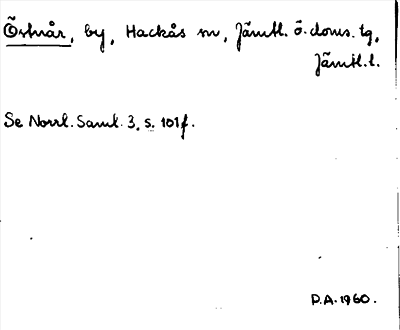 Östnår, by, Hackås sn, Jämtl. ö. doms. tg,
Jämtl. l.
Se Norrl. Saml. 3, s. 101f.
P.A. 1960.